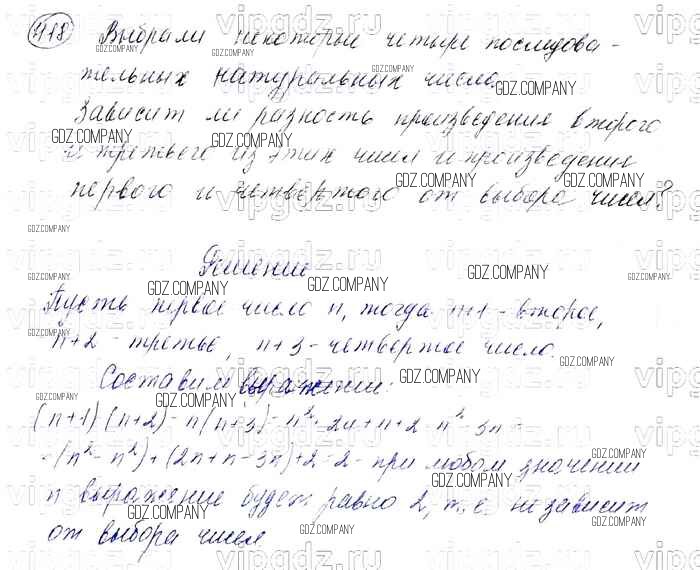 418 Выбрали некоторые четыре последова-
тельных натуральных числа.
Зависит ли разность произведения второго
и третьего из этих чисел и произведения
первого и четвертого от выбора чисел?
Решение
Пусть первое число n, тогда n+1 - второе,
n+2 - третье, n+3 - четвертое число.
Составим выражение:
(n+1)(n+2) - n(n+3) = n² + 2n + n + 2 - n² - 3n =
= (n² - n²) + (2n + n - 3n) + 2 = 2 - при любом значении
n выражение будет равно 2, т.е. не зависит
от выбора чисел